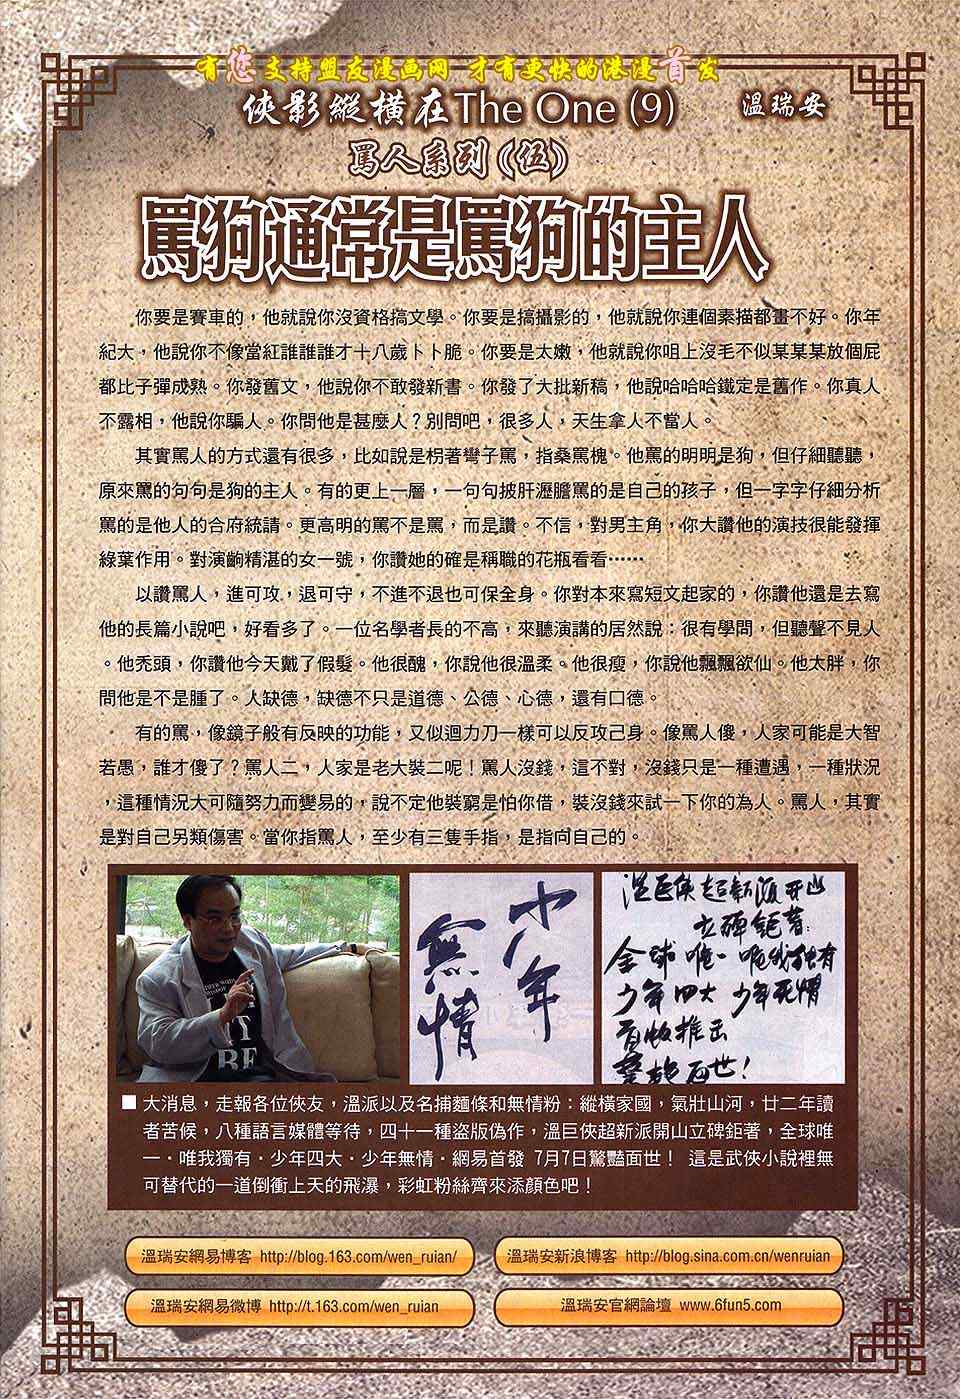 有您支持盟友漫画网 才有更快的港漫首发
俠影縱橫在The One (9) 溫瑞安
罵人系列《伍》
罵狗通常是罵狗的主人
你要是賽車的，他就說你沒資格搞文學。你要是搞攝影的，他就說你連個素描都畫不好。你年
紀大，他說你不像當紅誰誰誰才十八歲卜卜脆。你要是太嫩，他就說你咀上沒毛不似某某某放個屁
都比子彈成熟。你發舊文，他說你不敢發新書。你發了大批新稿，他說哈哈哈鐵定是舊作。你真人
不露相，他說你騙人。你問他是甚麼人？別問吧，很多人，天生拿人不當人。
其實罵人的方式還有很多，比如說是柺著彎子罵，指桑罵槐。他罵的明明是狗，但仔細聽聽，
原來罵的句句是狗的主人。有的更上一層，一句句披肝瀝膽罵的是自己的孩子，但一字字仔細分析
罵的是他人的合府統請。更高明的罵不是罵，而是讚。不信，對男主角，你大讚他的演技很能發揮
綠葉作用。對演齣精湛的女一號，你讚她的確是稱職的花瓶看看……
以讚罵人，進可攻，退可守，不進不退也可保全身。你對本來寫短文起家的，你讚他還是去寫
他的長篇小說吧，好看多了。一位名學者長的不高，來聽演講的居然說：很有學問，但聽聲不見人
。他禿頭，你讚他今天戴了假髮。他很醜，你說他很溫柔。他很瘦，你說他飄飄欲仙。他太胖，你
問他是不是腫了。人缺德，缺德不只是道德、公德、心德，還有口德。
有的罵，像鏡子般有反映的功能，又似迴力刀一樣可以反攻己身。像罵人傻，人家可能是大智
若愚，誰才傻了？罵人二，人家是老大裝二呢！罵人沒錢，這不對，沒錢只是一種遭遇，一種狀況
，這種情況大可隨努力而變易的，說不定他裝窮是怕你借，裝沒錢來試一下你的為人。罵人，其實
是對自己另類傷害。當你指罵人，至少有三隻手指，是指向自己的。
少年
無情
溫巨俠超新派開山
立碑鉅著：
全球唯一 唯我獨有
少年四大 少年無情
首版推出
驚艷面世！
■ 大消息，走報各位俠友，溫派以及名捕麵條和無情粉：縱橫家國，氣壯山河，廿二年讀
者苦候，八種語言媒體等待，四十一種盜版偽作，溫巨俠超新派開山立碑鉅著，全球唯
一．唯我獨有．少年四大．少年無情．網易首發 7月7日驚豔面世！ 這是武俠小說裡無
可替代的一道倒衝上天的飛瀑，彩虹粉絲齊來添顏色吧！
溫瑞安網易博客 http://blog.163.com/wen_ruian/
溫瑞安新浪博客 http://blog.sina.com.cn/wenruian
溫瑞安網易微博 http://t.163.com/wen_ruian
溫瑞安官網論壇 www.6fun5.com